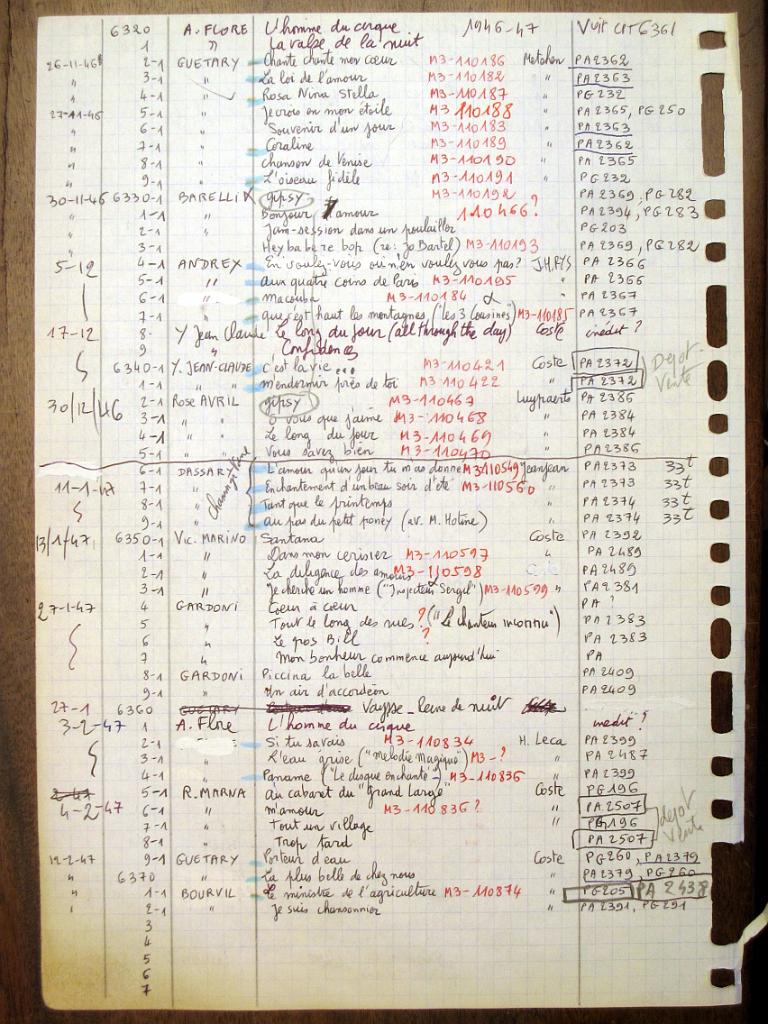 6320 A. FLORE L'homme du cirque 1946-47 Voir CPT 6361
1 " La valse de la nuit
26-11-46 2-1 GUETARY Chante chante mon cœur M3-110186 Metehen PA2362
" 3-1 " La loi de l'amour M3-110182 " PA2363
" 4-1 " Rosa Nina Stella M3-110187 " PG232
27-11-46 5-1 " Je crois en mon étoile M3 110188 " PA2365, PG250
" 6-1 " Souvenir d'un jour M3-110183 " PA2363
" 7-1 " Coraline M3-110189 " PA2362
" 8-1 " chanson de Venise M3-110190 " PA2365
" 9-1 " L'oiseau fidèle M3-110191 " PG232
30-11-46 6330-1 BARELLI X gipsy M3-110192 PA2369, PG282
" 1-1 " Bonjour l'amour 110466? PA2394, PG283
" 2-1 " Jam-session dans un poulailler PG203
" 3-1 " Hey babe re bop (re: Jo Bartel) M3-110193 PA2369, PG282
5-12 4-1 ANDREX En voulez-vous ou n'en voulez vous pas? J.H.RYS PA 2366
5-1 " aux quatre coins de Paris M3-110195 " PA 2366
6-1 " Macouba M3-110184 " PA2367
7-1 " que c'est haut les montagnes ("les 3 Cousines") M3-110185 " PA2367
17-12 8- Y Jean Claude Le long du jour (all through the day) Coste inédit?
9 " Confidences
6340-1 Y. JEAN-CLAUDE c'est la vie... M3-110421 Coste PA2372 Depot-Vente
1-1 " " m'endormir près de toi M3-110422 " PA2372
30/12/46 2-1 Rose AVRIL gipsy M3-110467 Luypaerts PA2386
3-1 " " o vous que j'aime M3-110468 " PA2384
4-1 " " Le long du jour M3-110469 " PA2384
5-1 " " Vous savez bien M3-110470 " PA2386
6-1 DASSARY L'amour qu'un jour tu m'as donné M3-110549 Jeanjean PA2373 33t
11-1-47 7-1 " Enchantement d'un beau soir d'été M3-110550 " PA2373 33t
8-1 " Tant que le printemps " PA2374 33t
9-1 " au pas du petit poney (av. M. Hotine) " PA2374 33t
13/1/47 6350-1 Vic. MARINO Santana Coste PA2392
1-1 " Dans mon cerisier M3-110597 " PA2489
2-1 " La diligence des amours M3-110598 PA2489
3-1 " Je cherche un homme ("Inspecteur Sergil") M3-110599 " PA2381
27-1-47 4 GARDONI Cœur à cœur PA ?
5 " Tout le long des rues? ("Le chanteur inconnu") PA2383
6 " Le gros Bill ? PA2383
7 " Mon bonheur commence aujourd'hui PA
8-1 GARDONI Piccina la belle PA2409
9-1 " Un air d'accordéon PA2409
27-1 6360 GUETARY Vaysse - Reine de nuit
3-2-47 1 A. Flore L'homme du cirque inédit?
2-1 Si tu savais M3-110834 H. Leca PA2399
3-1 " L'eau grise ("Mélodie Magique") M3-? " PA2487
4-1 " Paname ("Le disque enchanté") M3-110835 " PA2399
5-1 R. MARNA au cabaret du "grand large" Coste PG196
4-2-47 6-1 " m'amour M3-110836? " PA2507 dépot Vente
7-1 " Tout un village " PG196
8-1 " Trop tard PA2507
12-2-47 9-1 GUETARY Porteur d'eau Coste PG260, PA2379
" 6370 " La plus belle de chez nous " PA2379, PG260
" 1-1 BOURVIL Le ministre de l'agriculture M3-110874 " PG205 PA 2438
" 2-1 " Je suis chansonnier " PA2391, PG291
3
4
5
6
7